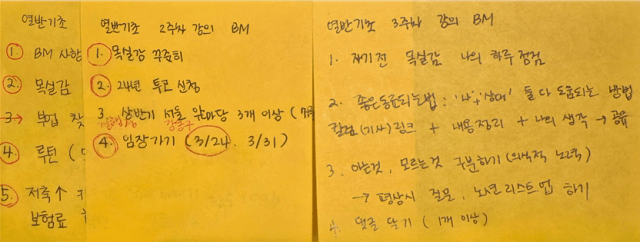 열반기초
1. BM 사항
2. 목실감
3. 부업 찾
4. 루틴 (
5. 저축↑
보험료
열반기초 2주차 강의 BM
1. 목실감 꾸준히
2. 24년 독모 신청
3. 상반기 서울 앞마당 3개 이상 (
강동구
4. 임장가기 (3/24. 3/31)
열반기초 3주차 강의 BM
1. 자기전 목실감 나의 하루 점검
2. 좋은동료되는법 : '나'+'상대' 둘 다 도움되는 방법
칼럼(기사)링크 + 내용정리 + 나의 생각 → 공유
3. 아는것, 모르는것 구분하기 (의식적 노력)
→ 평상시 질문, 노션리스트업 하기
4. 댓글 달기 (1개 이상)